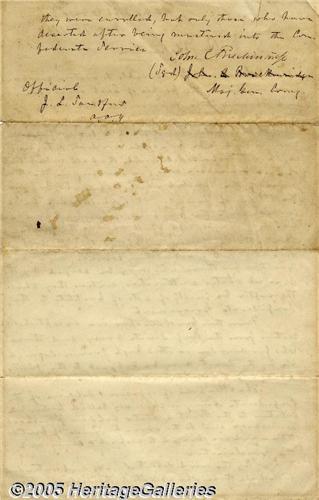 they were enrolled, but only those who have
deserted after being mustered into the Con-
federate Service
John C Breckinridge
(Sgd) John C Breckinridge
Official Maj Gen Comg
J. L. Sandford
a.a.g
©2005 HeritageGalleries